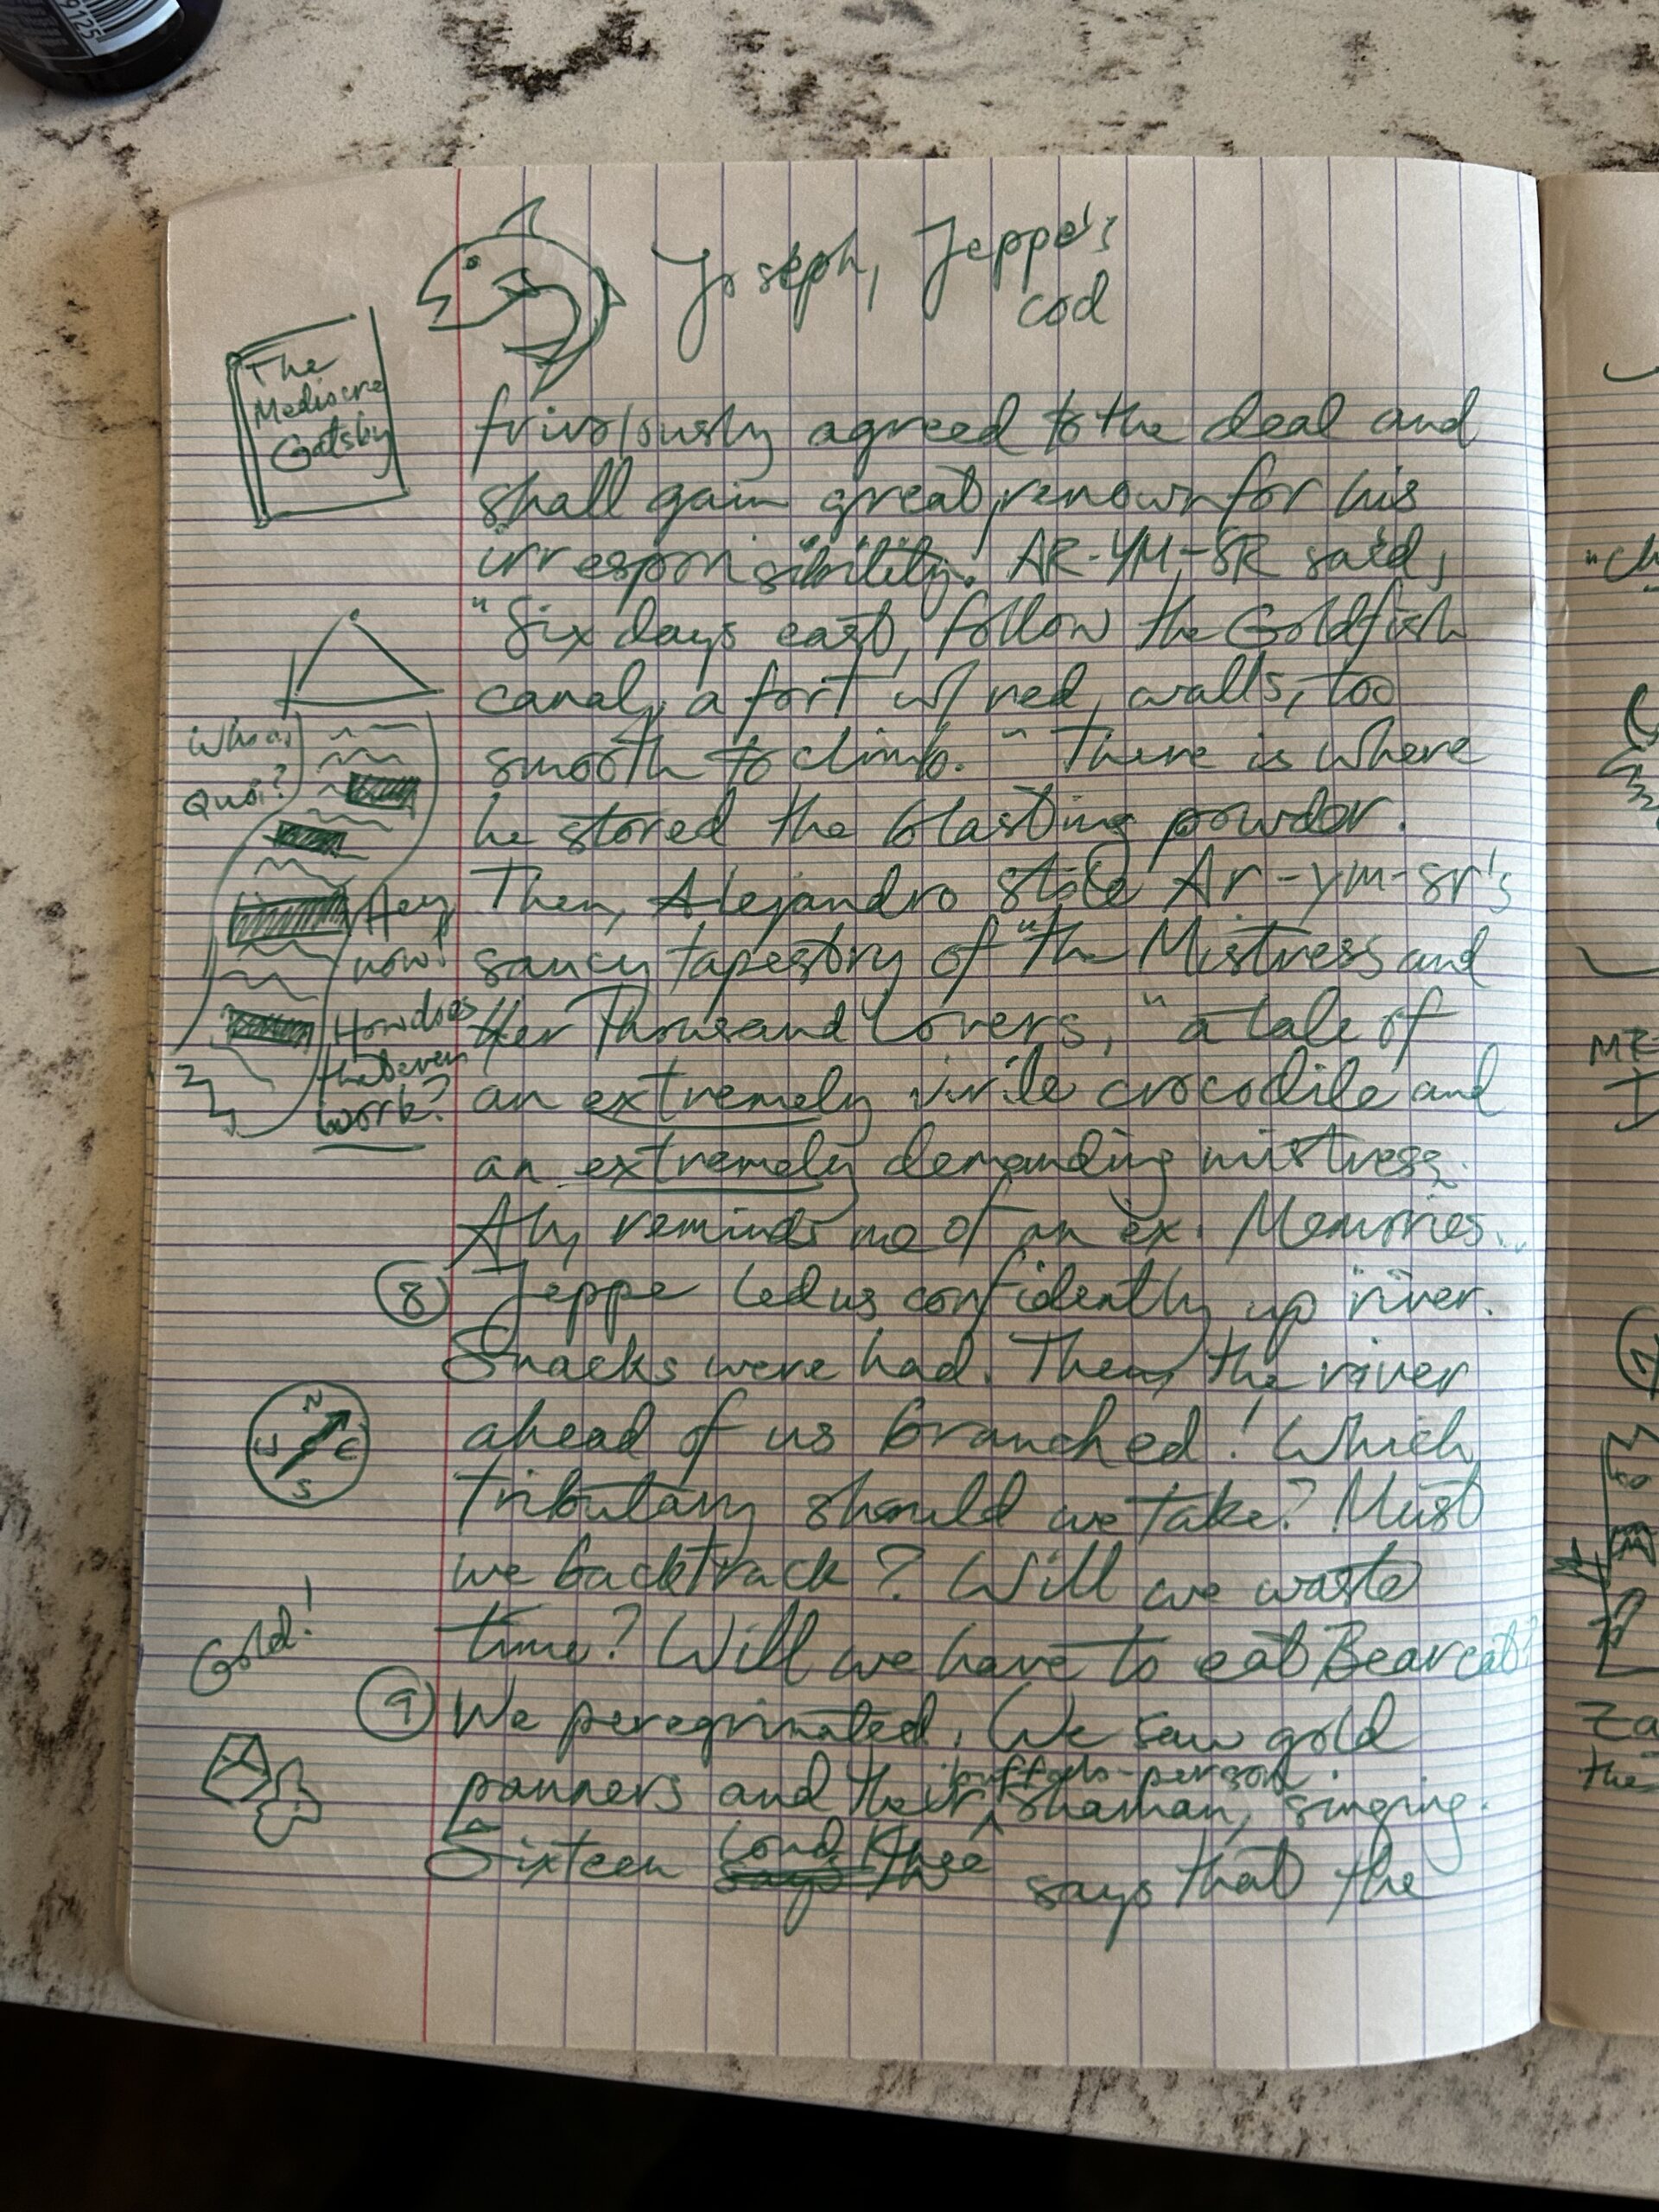 Joseph, Jeppe's
cod
The
Mediocre
Gatsby
frivolously agreed to the deal and
shall gain great renown for his
irresponsibility. AR-YM-SR said,
"Six days east, follow the Goldfish
canal, a fort w/ red walls, too
smooth to climb." There is where
he stored the blasting powder.
Then, Alejandro stole Ar-ym-sr's
saucy tapestry of "the Mistress and
Her Thousand Lovers," a tale of
an extremely virile crocodile and
an extremely demanding mistress.
Ah, reminds me of an ex. Memories...
Whoa,
Quoi?
Hey
now!
How does
that even
work?
8 Jeppe led us confidently up river.
Snacks were had. Then, the river
ahead of us branched! Which
tributary should we take? Must
we backtrack? Will we waste
time? Will we have to eat Bearcat?
N
W E
S
Gold!
9 We peregrinated. We saw gold
buffalo-person
panners and their ^ shaman, singing.
Sixteen Cond Knee says that the
9125
"Ch
ME
I
Za
the